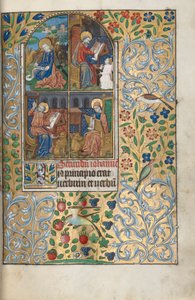 Secundum iohannem
In principio erat
verbum et verbū